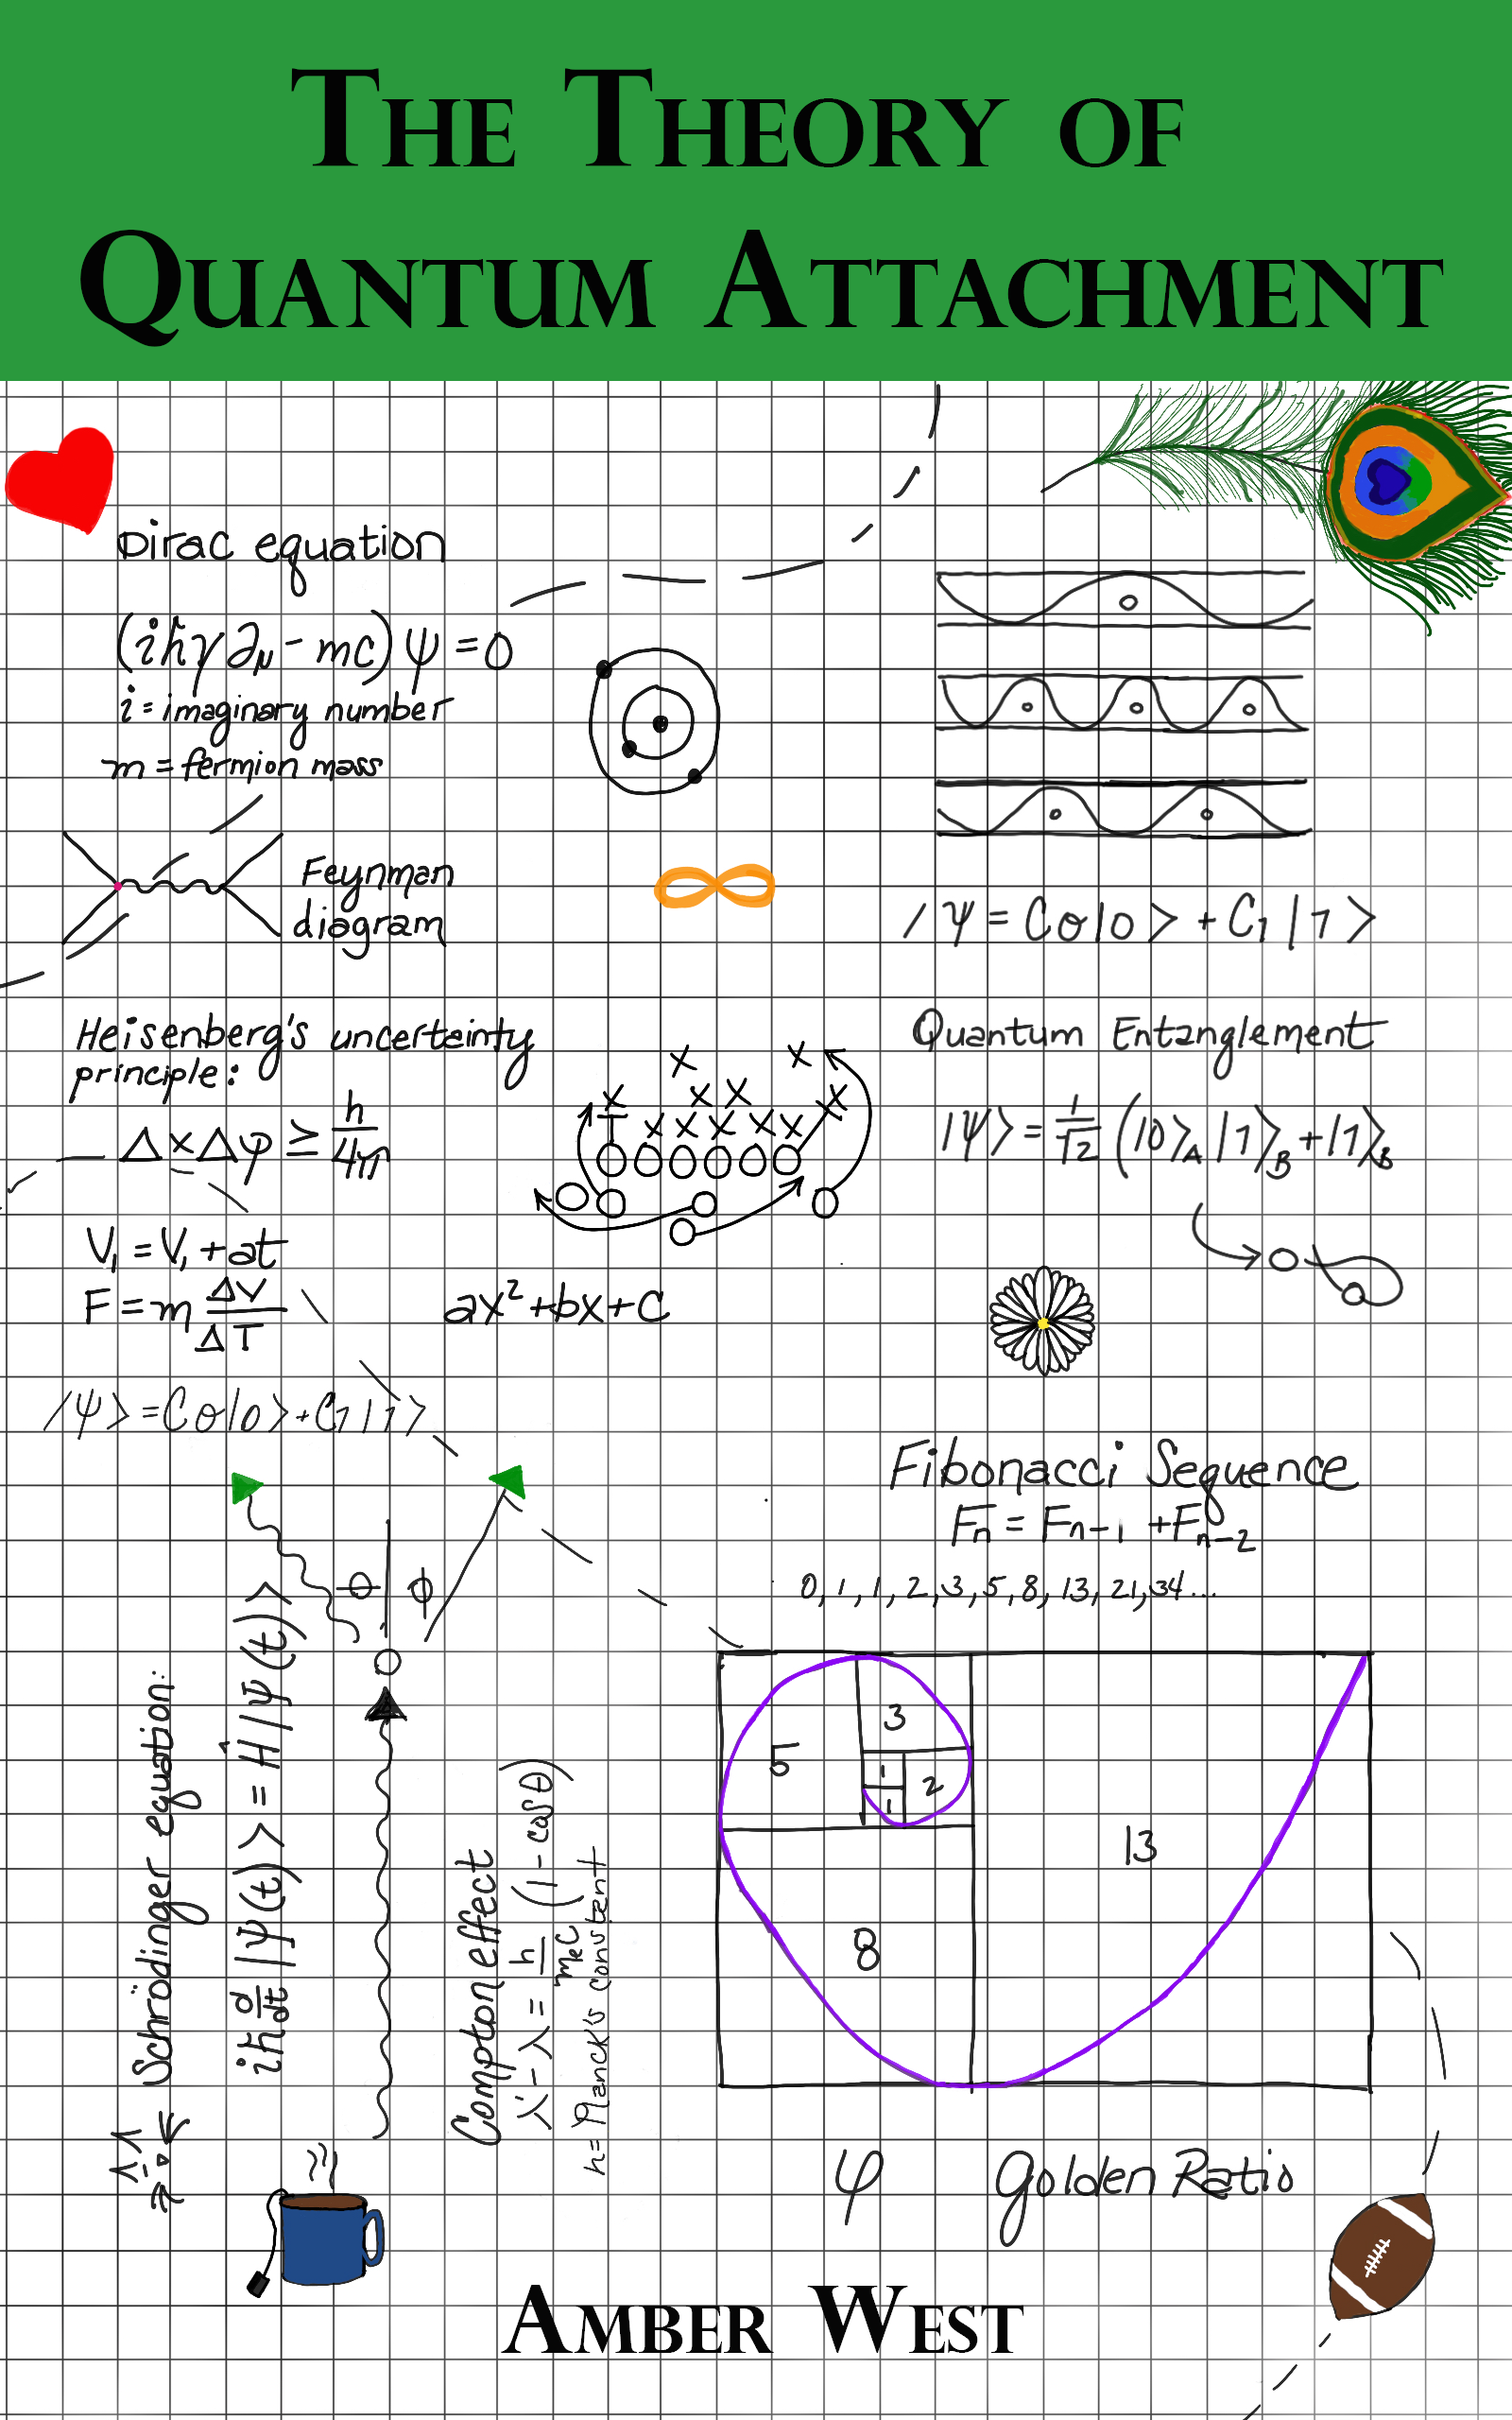 The Theory of
Quantum Attachment
Dirac equation
(iħγ∂μ - mc)ψ = 0
i = imaginary number
m = fermion mass
Feynman
diagram
|ψ = C0|0> + C1|1>
Heisenberg's uncertainty
principle:
ΔxΔφ ≥ h/4π
Quantum Entanglement
|ψ> = 1/√2 (|0>A |1>B + |1>B
X X
X X X X
X X X X X
V1 = V1 + at
F = m ΔV/ΔT
ax² + bx + c
|ψ> = C0|0> + C1|1>
Fibonacci Sequence
Fn = Fn-1 + Fn-2
0, 1, 1, 2, 3, 5, 8, 13, 21, 34...
θ φ
Schrödinger equation:
iħ d/dt |ψ(t)> = Ĥ|ψ(t)>
Compton effect
λ' - λ = h/meC (1 - cosθ)
h = Planck's constent
3
5
1
2
1
13
8
φ Golden Ratio
Amber West